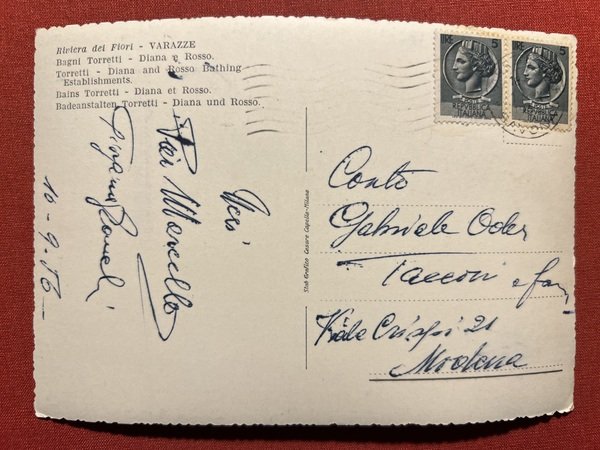 Riviera dei Fiori - VARAZZE
Bagni Torretti - Diana e Rosso.
Torretti - Diana and Rosso Bathing
Establishments.
Bains Torretti - Diana et Rosso.
Badeanstalten Torretti - Diana und Rosso.
5
5
REPUBBLICA
ITALIANA
REPUBBLICA
ITALIANA
Marcello
10-9-56
Stab. Grafico Cesare Capello - Milano
Conto
Gabriele Oder
Tacconi e fam
Viale Crispi 21
Modena